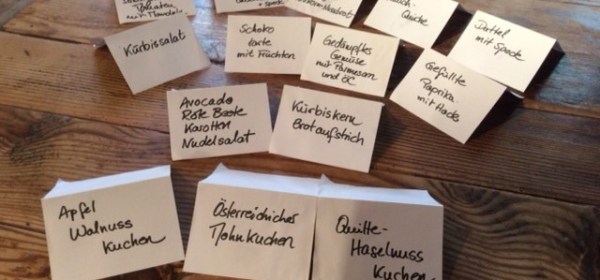 mit Mandeln
+ Speck
Quiche
Kürbissalat
Schoko
torte
mit Früchten
Gedämpftes
Gemüse
mit Parmesan
und Öl
Dattel
mit Speck
Gefüllte
Paprika
mit Hack
Avocado
Rote Beete
Karotten
Nudelsalat
Kürbiskern
Brotaufstrich
Apfel
Walnuss
Kuchen
Österreichischer
Mohnkuchen
Quitte-
Haselnuss
Kuchen